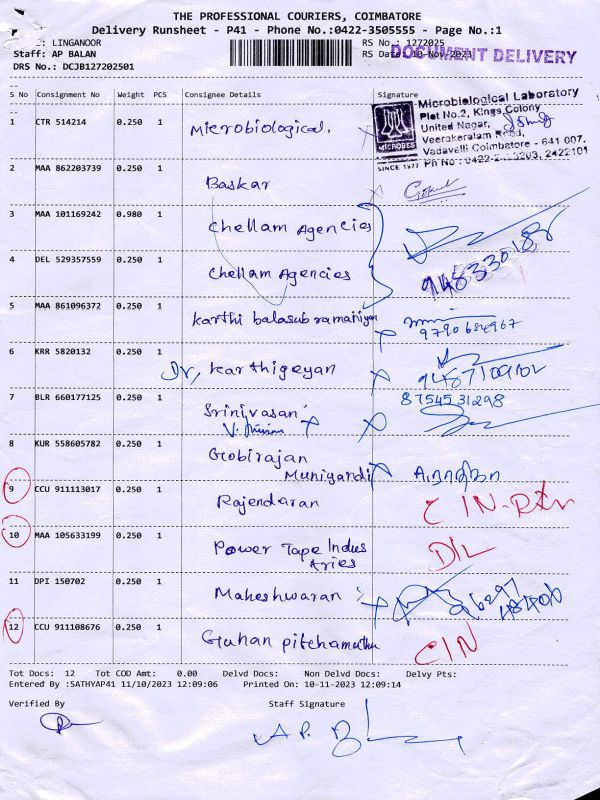 THE PROFESSIONAL COURIERS, COIMBATORE
Delivery Runsheet - P41 - Phone No.:0422-3505555 - Page No.:1
: LINGANOOR RS No.: 1272025
Staff: AP BALAN RS Date: 10-Nov-2023
DOCUMENT DELIVERY
DRS No.: DCJB127202501
S No Consignment No Weight PCS Consignee Details Signature
1 CTR 514214 0.250 1 Microbiological,
Microbiological Laboratory
Plot No.2, Kings Colony
United Nagar,
Veerakeralam Road,
Vadavalli Coimbatore - 641 007.
MICROBES
SINCE 1977
2 MAA 862203739 0.250 1 Baskar
3 MAA 101169242 0.980 1 Chellam Agencies
4 DEL 529357559 0.250 1 Chellam Agencies
5 MAA 861096372 0.250 1 Karthi balasubramaniyan
9790684967
6 KRR 5820132 0.250 1 Dr, Karthigeyan
7 BLR 660177125 0.250 1 Srinivasan 8754531298
8 KUR 558605782 0.250 1 Gobirajan
Muniyandi
9 CCU 911113017 0.250 1 Rajendaran
10 MAA 105633199 0.250 1 Power Tape Indus
tries D/L
11 DPI 150702 0.250 1 Maheshwaran
12 CCU 911108676 0.250 1 Guhan pitchamuthu C/N
Tot Docs: 12 Tot COD Amt: 0.00 Delvd Docs: Non Delvd Docs: Delvy Pts:
Entered By :SATHYAP41 11/10/2023 12:09:06 Printed On: 10-11-2023 12:09:14
Verified By Staff Signature